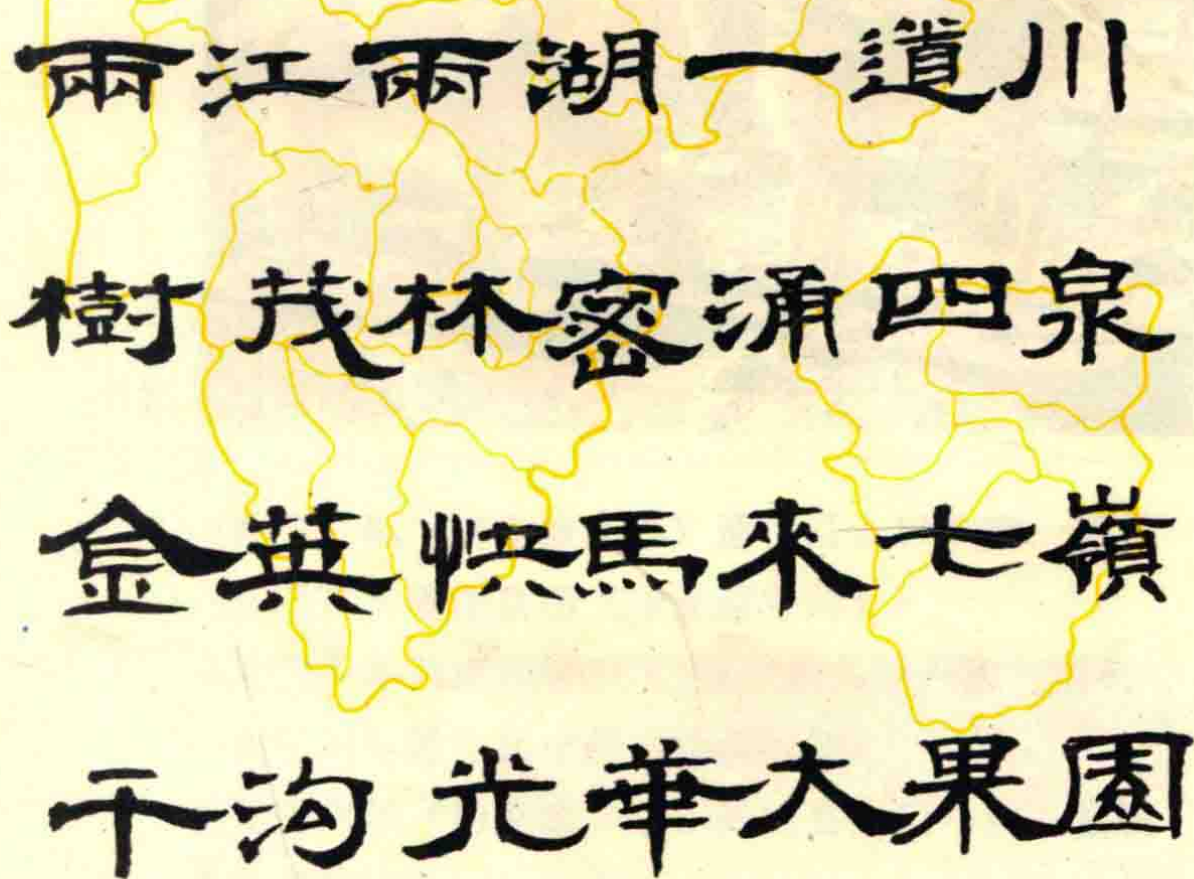 兩江兩湖一道川
樹茂林密涌四泉
金英快馬來七嶺
干沟光華大果園